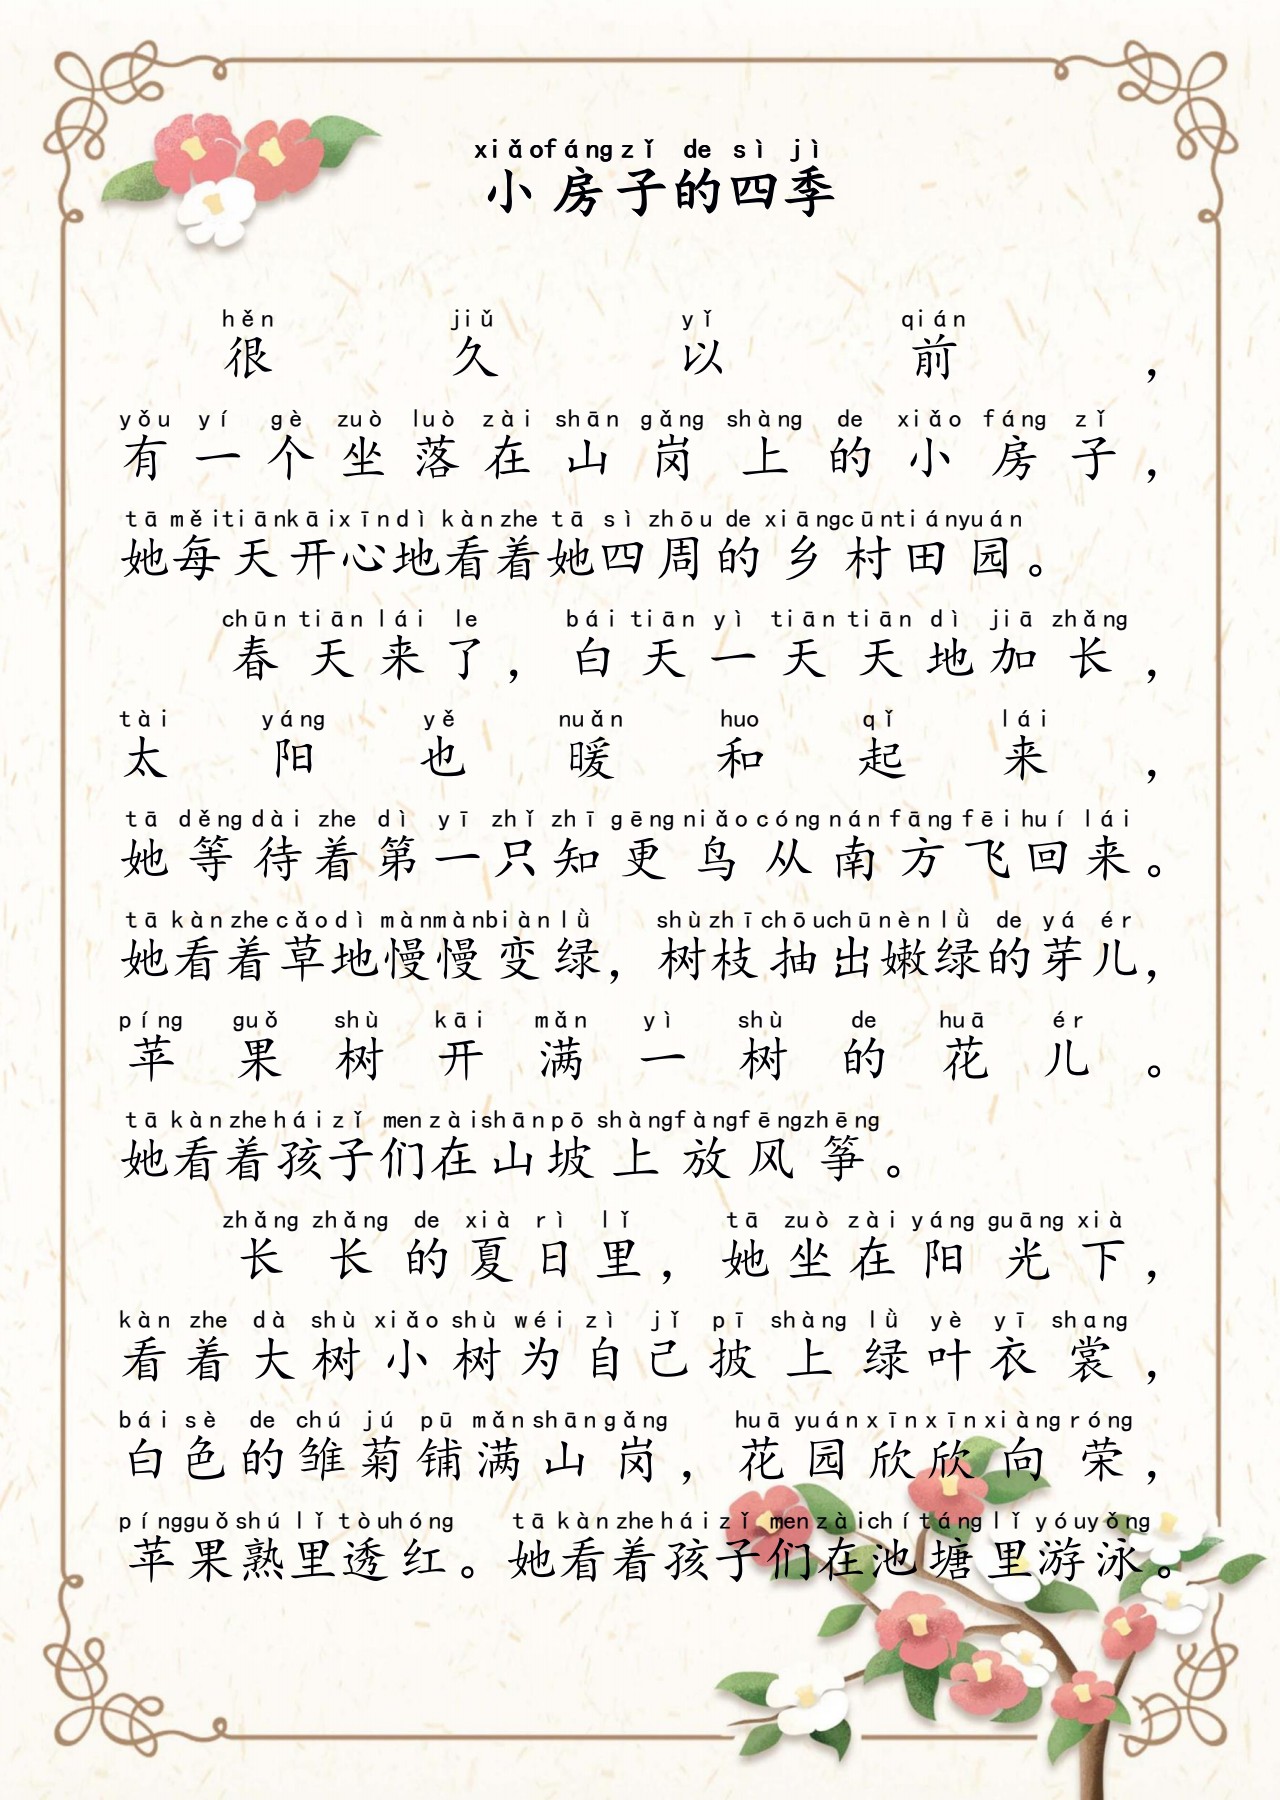 xiǎofángzǐ de sì jì
小房子的四季
hěn jiǔ yǐ qián
很久以前，
yǒu yí gè zuò luò zài shān gǎng shàng de xiǎo fáng zǐ
有一个坐落在山岗上的小房子，
tā měitiānkāixīndì kànzhe tā sì zhōu de xiāngcūntiányuán
她每天开心地看着她四周的乡村田园。
chūn tiān lái le bái tiān yì tiān tiān dì jiā zhǎng
春天来了，白天一天天地加长，
tài yáng yě nuǎn huo qǐ lái
太阳也暖和起来，
tā děng dài zhe dì yī zhǐ zhī gēng niǎo cóng nán fāng fēi huí lái
她等待着第一只知更鸟从南方飞回来。
tā kàn zhe cǎo dì mànmànbiàn lǜ shù zhī chōuchūnèn lǜ de yá ér
她看着草地慢慢变绿，树枝抽出嫩绿的芽儿，
píng guǒ shù kāi mǎn yì shù de huā ér
苹果树开满一树的花儿。
tā kàn zhe hái zǐ men zàishānpō shàngfàngfēngzhēng
她看着孩子们在山坡上放风筝。
zhǎng zhǎng de xià rì lǐ tā zuò zài yáng guāng xià
长长的夏日里，她坐在阳光下，
kàn zhe dà shù xiǎo shù wéi zì jǐ pī shàng lǜ yè yī shang
看着大树小树为自己披上绿叶衣裳，
bái sè de chú jú pū mǎn shān gǎng huā yuán xīn xīn xiàng róng
白色的雏菊铺满山岗，花园欣欣向荣，
píngguǒshú lǐ tòuhóng tā kàn zhe hái zǐ men zàichítáng lǐ yóuyǒng
苹果熟里透红。她看着孩子们在池塘里游泳。